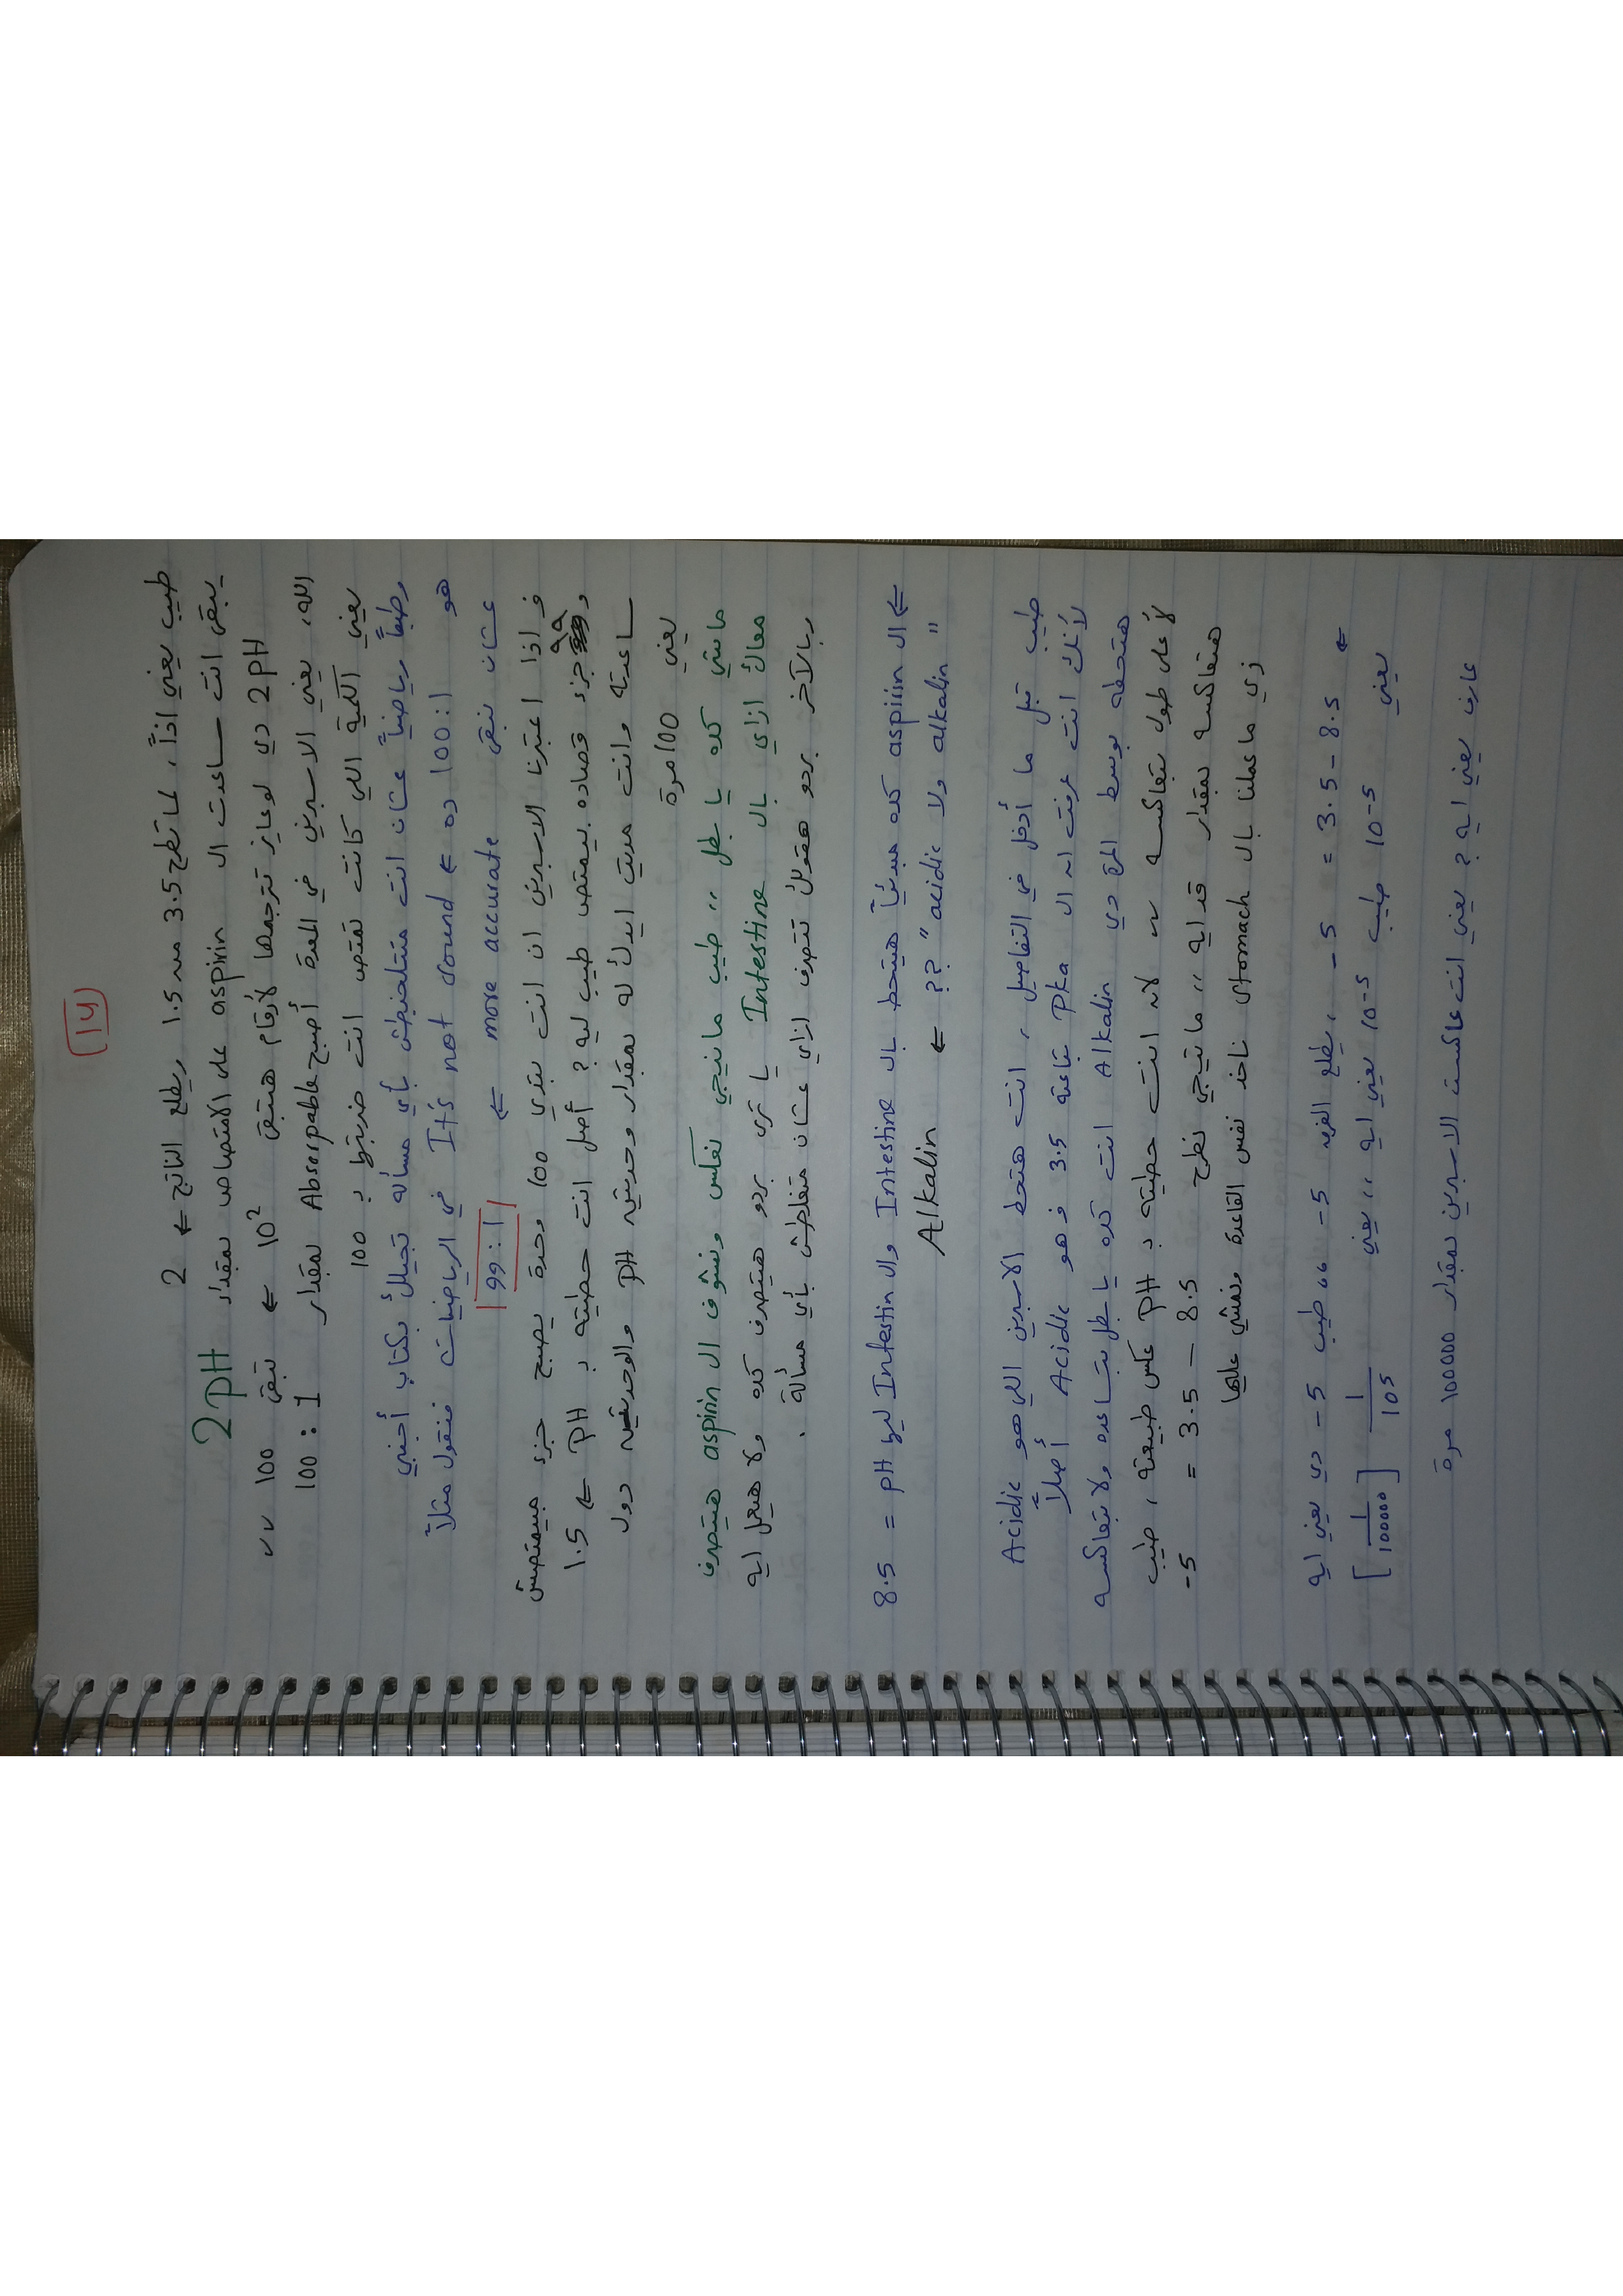 14
طيب يعني اذاً، لما تطرح 3.5 من 1.5 ويطلع الناتج ← 2
يبقى انت ساعدت ال aspirin على الامتصاص بمقدار 2pH
2pH دي لو عايز تترجمها لأرقام هتبقى 10² ← تبقى 100 ،،
الله، يعني الاسبرين في المعدة أصبح Absorpable بمقدار 100 : 1
يعني الكمية اللي كانت تمتص انت ضربتها بـ 100
وطبعاً رياضياً عشان انت متتلخبطش بأي مسألة تجيلك بكتاب أجنبي
هو 100:1 ده ← It's not sound في الرياضيات فنقول مثلاً
عشان نبقى more accurate ← 99:1
فـ اذا اعتبرنا الاسبرين ان انت بتدي 100 وحدة يصبح جزء مبيمتصش
و 99 جزء قصاده بيمتص طيب ليه؟ أصل انت حطيته بـ pH ← 1.5
ساعدته وانت مديت ايدك له بمقدار وحدتين pH والوحدتين دول
يعني 100 مرة
ماشي كده يا بطل ،، طيب مانيجي نعكس ونشوف ال aspirin هيتصرف
معاك ازاي بال Intestine يا ترى بردو هيتصرف كده ولا هيعمل ايه
وبالآخر بردو هقولك تتصرف ازاي عشان متغلطش بأي مسألة .
← ال aspirin كده مبدئياً هيتحط بال Intestine وال Intestin ليها pH = 8.5
" acidic ولا alkalin " ?? ← Alkalin
طيب قبل ما أدخل في التفاصيل، انت هتحط الاسبرين اللي هو Acidic
لأنك انت عرفت ان ال Pka بتاعته 3.5 فهو Acidic أصلاً
هتحطه بوسط المرة دي Alkalin انت كده يا بطل بتساعده ولا بتعاكسه
لأ على طول بتعاكسه ~ لانه انت حطيته بـ pH عكس طبيعته، طيب
هتعاكسه بمقدار قد ايه ،، ماتيجي نطرح 8.5 - 3.5 = -5
زي ما عملنا بال Stomach ناخد نفس القاعدة ونمشي عليها
← 8.5 - 3.5 = -5 ، يطلع الفرق -5 ،، طيب -5 دي يعني ايه
يعني 10-5 طيب 10-5 يعني ايه ،، يعني 1/10⁵ [ 1/100000 ]
عارف يعني ايه ؟ يعني انت عاكست الاسبرين بمقدار 100000 مرة